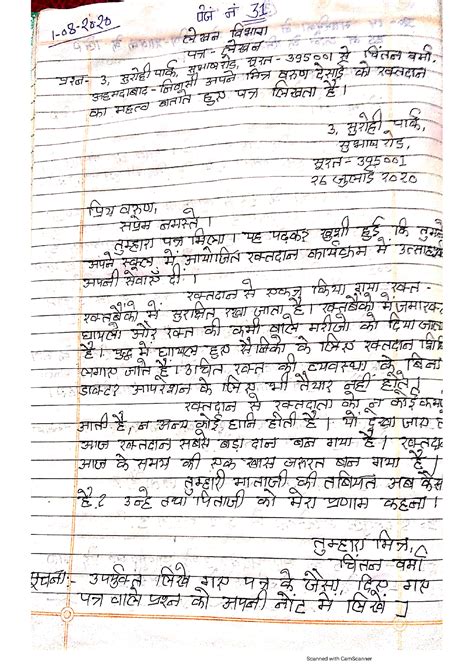 पेज नं 31
1-08-2020
लेखन विभाग
पत्र-लेखन
प्रश्न- 3, सुरोही पार्क, सुभाष रोड, सूरत-395001 से चिंतन वर्मा,
अहमदाबाद-निवासी अपने मित्र वरुण देसाई को रक्तदान
का महत्व बताते हुए पत्र लिखता है।
3, सुरोही पार्क,
सुभाष रोड,
सूरत-395001
26 जुलाई 2020
प्रिय वरुण,
सप्रेम नमस्ते।
तुम्हारा पत्र मिला। यह पढ़कर खुशी हुई कि तुमने
अपने स्कूल में आयोजित रक्तदान कार्यक्रम में
अपनी सेवाएँ दीं।
रक्तदान से एकत्र किया गया रक्त-
रक्तबैंको में सुरक्षित रखा जाता है। रक्तबैंको में जमा रक्त
घायलो और रक्त की कमी वाले मरीजो को दिया जाता
है। युद्ध में घायल हुए सैनिको के लिए रक्तदान
लगाए जाते है। उचित रक्त की व्यवस्था के बिना
डाक्टर आपरेशन के लिए भी तैयार नहीं होते।
रक्तदान से रक्तदाता को न कोई
आती है, न अन्य कोई हानि होती है। यो देखा जाए
आज रक्तदान सबसे बड़ा दान बन गया है।
आज के समय की एक खास जरुरत बन गया है।
तुम्हारी माताजी की तबियत अब कैसी
है.? उन्हे तथा पिताजी को मेरा प्रणाम कहना।
तुम्हारा मित्र,
चिंतन वर्मा
सूचना:- उपर्युक्त लिखे गए पत्र के जैसा, दिए गए
पत्र वाले प्रश्न को अपनी नोंट में लिखें।
Scanned with CamScanner